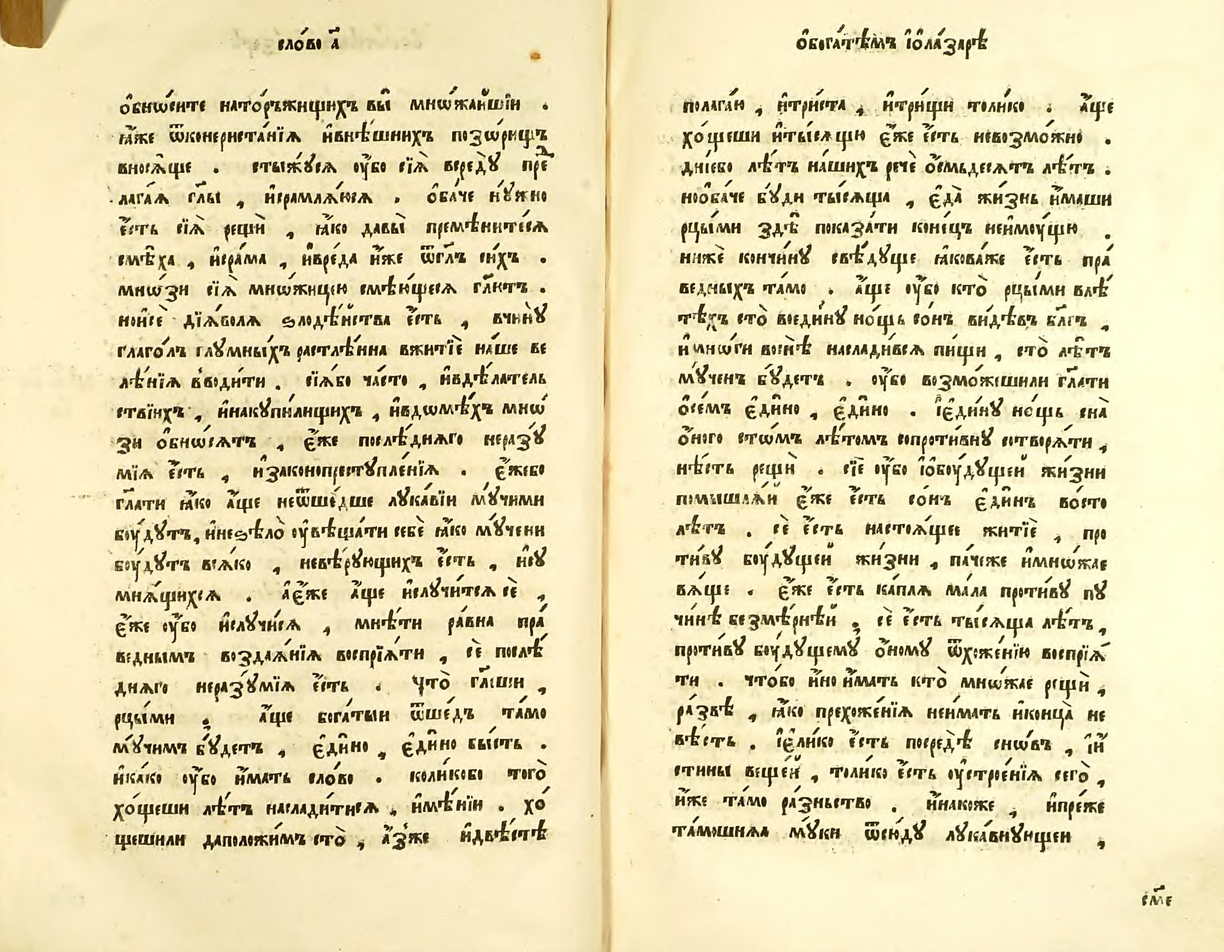 сло́во а҃
ѻ҆бно́сите наторъжищихъ вы̀ мно́жайшїи .
ꙗ҆́же ѿконериста́нїѧ и҆внѣ́шнихъ позо́рищъ
вносѧ́ще . стыжꙋ́сѧ ᲂу҆́бо сїѧ̀ вередꙋ̀ пред
лага́ѧ гл҃ы , и҆срамлѧ́юсѧ . ѻ҆ба́че нꙋ́жно
є҆́сть сїѧ̀ рещѝ , ꙗ҆́ко давы̀ премѣ́нитесѧ
смѣ́ха , и҆сра́ма , и҆вре́да и҆́же ѿгл҃ъ си́хъ .
мно́зи сїѧ̀ мно́жицею смѣю́щесѧ гл҃ютъ .
нои҆сѐ дїѧ́волѧ ѕлодѣ́йства є҆́сть , вчи́нꙋ
глаго́лъ глꙋ́мныхъ растлѣ́нна вжитїѐ на́ше ве
лѣ́нїѧ вводи́ти . сїѧ́бо ча́сто , и҆вдѣ́латель
ствїихъ , и҆накꙋпи́лищихъ , и҆вдомѣ́хъ мнѡ́
зи ѻ҆бно́сѧтъ , є҆́же послѣ́днѧго неразꙋ́
мїѧ є҆́сть , и҆законопрестꙋпле́нїѧ . є҆́жебо
гл҃ати ꙗ҆́ко а҆́ще неѿше́дше лꙋка́вїи мꙋ́чими
бᲂу́дꙋтъ, и҆неѕѣлѡ̀ ᲂу҆вѣща́ти себѐ ꙗ҆́ко мꙋ́чени
бᲂу́дꙋтъ всѧ́ко , невѣ́рꙋющихъ є҆́сть , и҆сꙋ
мнѧ́щихсѧ . а҆є҆́же а҆́ще и҆слꙋчи́тсѧ сѐ ,
є҆́же ᲂу҆́бо и҆слꙋчи́сѧ , мнѣ́ти ра́вна пра́
веднымъ воздаѧ́нїѧ воспрїѧ́ти , сѐ послѣ́
днѧго неразꙋ́мїѧ є҆́сть . что̀ гл҃еши ,
рцы́ми , а҆́ще бога́тыи ѿше́дъ та́мо
мꙋ́чимъ бꙋ́детъ , є҆ди́но , є҆ди́но бы́сть .
и҆ка́ко ᲂу҆́бо и҆́мать сло́во . коли́кобо того̀
хо́щеши лѣ́тъ наслади́тисѧ , и҆мѣ́нїи . хо́
щешили даположи́мъ сто̀ , а҆́зже и҆двѣ́стѣ
ѻ҆бога́тѣмъ і҆ѻла́зарѣ
полага́ю , и҆три́ста , и҆три́щи толи́ко . а҆́ще
хо́щеши и҆ты́сѧщꙋ є҆́же є҆́сть невозмо́жно .
дні́ебо лѣ́тъ на́шихъ речѐ ѻ҆́смьдесѧтъ лѣ́тъ .
ноѻ҆ба́че бꙋ́ди ты́сѧща , є҆да̀ жи́знь и҆́маши
рцы́ми здѣ̀ показа́ти коне́цъ неимᲂу́щꙋю .
нижѐ кончи́нꙋ свѣ́дꙋще ꙗ҆кова́же є҆́сть пра́
ведныхъ та́мо . а҆́ще ᲂу҆́бо кто̀ рцы́ми влѣ́
тѣхъ сто̀ воеди́нꙋ но́щь со́нъ ви́дѣвъ бл҃гъ ,
и҆мно́ги воснѣ̀ наслади́всѧ пи́щи , сто̀ лѣ́тъ
мꙋ́ченъ бꙋ́детъ . ᲂу҆́бо возмо́жешили гл҃ати
ѻ҆се́мъ є҆ди́но , є҆ди́но . і҆є҆ди́нꙋ но́щь сна̀
ѻ҆́ного сто́мъ лѣ́томъ сопроти́внꙋ сотворѧ́ти ,
нѣ́сть рещѝ . сїѐ ᲂу҆́бо і҆ѻбᲂу́дꙋщей жи́зни
помышлѧ́й є҆́же є҆́сть со́нъ є҆ди́нъ восто̀
лѣ́тъ . сѐ є҆́сть настоѧ́щее житїѐ , про
ти́вꙋ бᲂу́дꙋщей жи́зни , па́чеже и҆мно́жае
вѧ́ще . є҆́же є҆́сть ка́плѧ ма́ла проти́вꙋ пꙋ
чи́нѣ безмѣ́рнѣй , сѐ є҆́сть ты́сѧща лѣ́тъ ,
проти́вꙋ бᲂу́дꙋщемꙋ ѻ҆́номꙋ ѿхожде́нїю воспрїѧ́
ти . что́бо и҆́но и҆́мать кто̀ мно́жае рещѝ ,
ра́звѣ , ꙗ҆́ко прехожде́нїѧ неи́мать и҆конца̀ не
вѣ́сть . і҆є҆ли́ко є҆́сть посредѣ̀ сно́въ , і҆и҆
стины веще́й , толи́ко є҆́сть ᲂу҆строе́нїѧ сего̀ ,
и҆́же та́мо ра́зньство . и҆на́коже , и҆пре́же
та́мошнѧѧ мꙋ́ки ѿсю́дꙋ лꙋка́внꙋющеи ,
см҃е